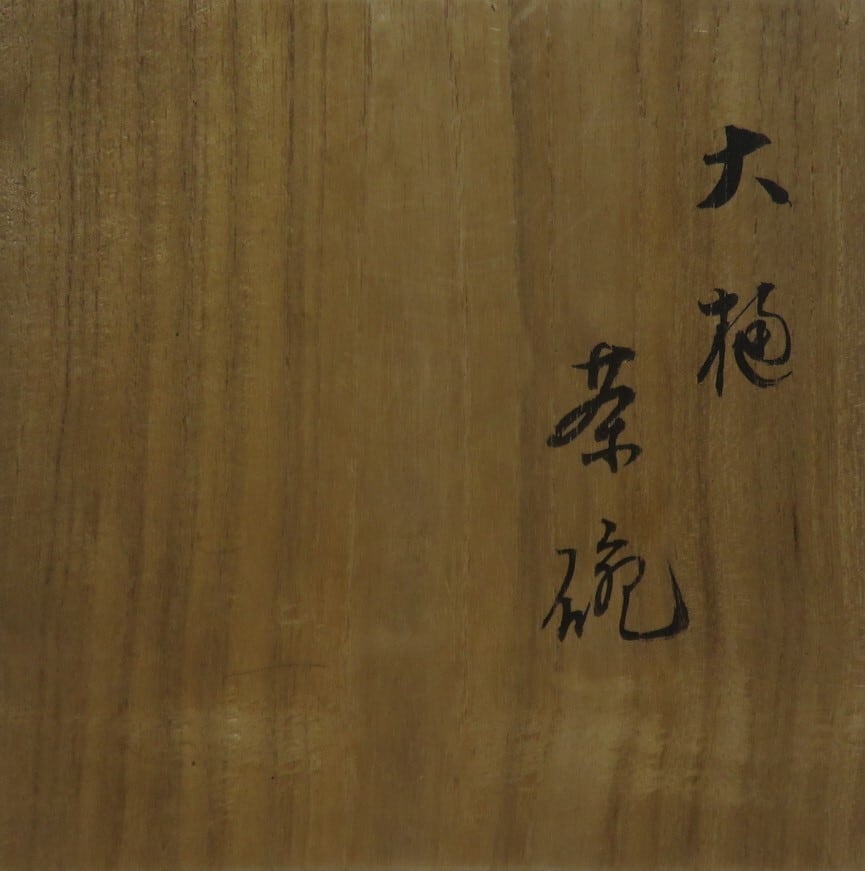 大樋
茶碗